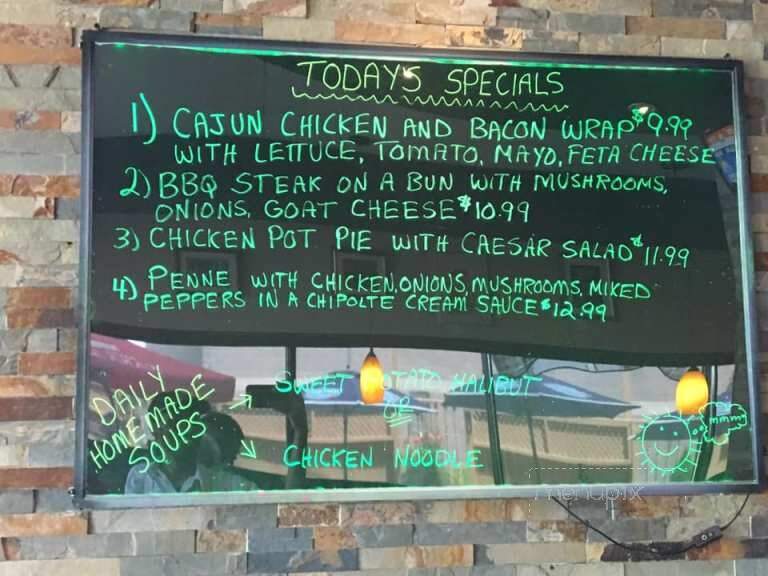 TODAY'S SPECIALS
1) CAJUN CHICKEN AND BACON WRAP $9.99
WITH LETTUCE, TOMATO, MAYO, FETA CHEESE
2) BBQ STEAK ON A BUN WITH MUSHROOMS,
ONIONS, GOAT CHEESE $10.99
3) CHICKEN POT PIE WITH CAESAR SALAD $11.99
4) PENNE WITH CHICKEN, ONIONS, MUSHROOMS, MIXED
PEPPERS IN A CHIPOLTE CREAM SAUCE $12.99
DAILY
HOMEMADE
SOUPS
SWEET POTATO HALIBUT
OR
CHICKEN NOODLE
mmmm
menupix